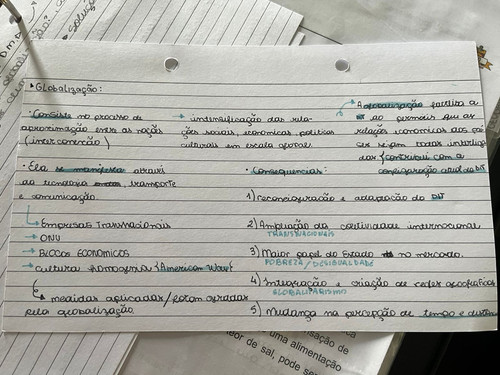 Globalização:
· Consiste no processo de
aproximação entre as noções
(interconexão)
→ indensificação das rela-
ções sociais, economicas, politicas
culturais em escala global.
A globalização facilita a
ao permair que as
relações economicas dos paí-
ses sejam todas interliga-
das (contribui com a
configuração atual da DIT
· Ela se manifesta através
da tecnologia, transporte
e comunicação
→ Empresas Transnacionais
→ ONU
→ BLOCOS ECONOMICOS
→ cultura homogenia (American Way)
→ medidas aplicadas/foram geradas
pela globalização
· Consequencias:
1) reconfiguração e adaptação da DIT
2) Ampliação da coletividade internacional
TRANSNACIONAIS
3) Maior papel do Estado no mercado.
POBREZA / DESIGUALDADE
4) Integração e criação de redes geográficas
GLOBALITARISMO
5) Mudança na percepção de tempo e distância
uma alimentação
eor de sal, pode ser